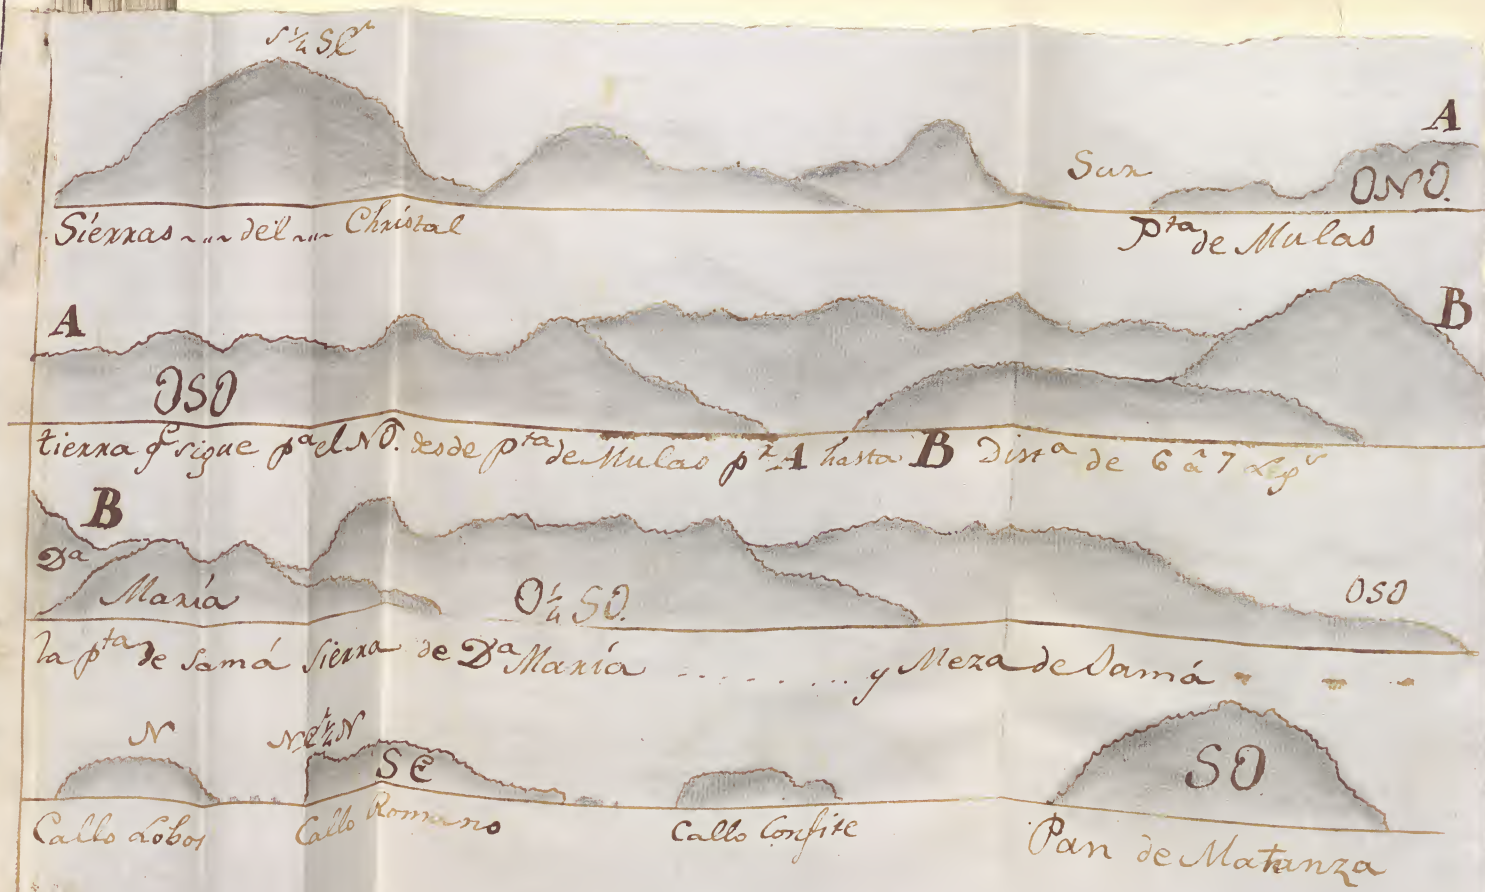 S ¼ SE
Sur
A
ONO.
Sierras del Christal
Pta de Mulas
A
B
OSO
tierra q sigue pa el NO. desde pta de Mulas pr A hasta B Dista de 6 â 7 Legs
B
Da
María
O ¼ SO.
OSO
la pta de Samá Sierra de Da María . . . . . . . . . y Meza de Samá
N
NE ¼ N
SE
SO
Callo Lobos
Callo Romano
Callo Confite
Pan de Matanza